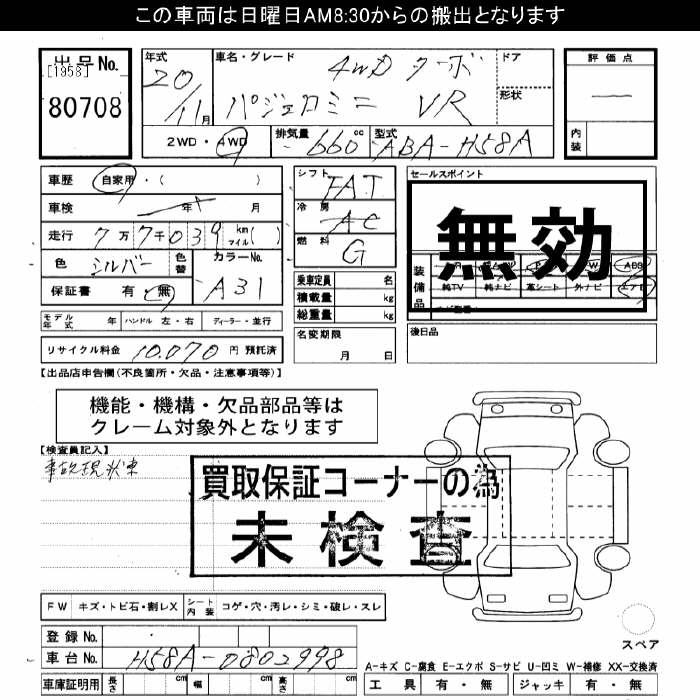 この車両は日曜日AM8:30からの搬出となります
出品No.
[1958]
80708
年式
20/11月
車名・グレード
4WD ターボ
パジェロミニ VR
ドア
形状
評価点
内装
2WD・4WD
排気量 660cc
型式 ABA-H58A
車歴 自家用・( )
車検 年 月
走行 7万7千039 km マイル( )
色 シルバー
色替
カラーNo. A31
保証書 有・無
シフト FAT
冷房 AC
燃料 G
乗車定員 名
積載量 kg
総重量 kg
セールスポイント
無効
装備品
純TV 純ナビ 革シート 外ナビ エアB
モデル年式 年 ハンドル 左・右 ディーラー・並行
名変期限
月 日
後日品
リサイクル料金 10,070 円 預託済
【出品店申告欄(不良箇所・欠品・注意事項等)】
機能・機構・欠品部品等は
クレーム対象外となります
【検査員記入】
事故現状車
買取保証コーナーの為
未検査
FW キズ・トビ石・割レX シート内装 コゲ・穴・汚レ・シミ・破レ・スレ
登録No.
車台No. H58A-0802998
車庫証明用 長さ cm 幅 cm 高さ cm
スペア
A-キズ C-腐食 E-エクボ S-サビ U-凹ミ W-補修 XX-交換済
工具 有・無 ジャッキ 有・無